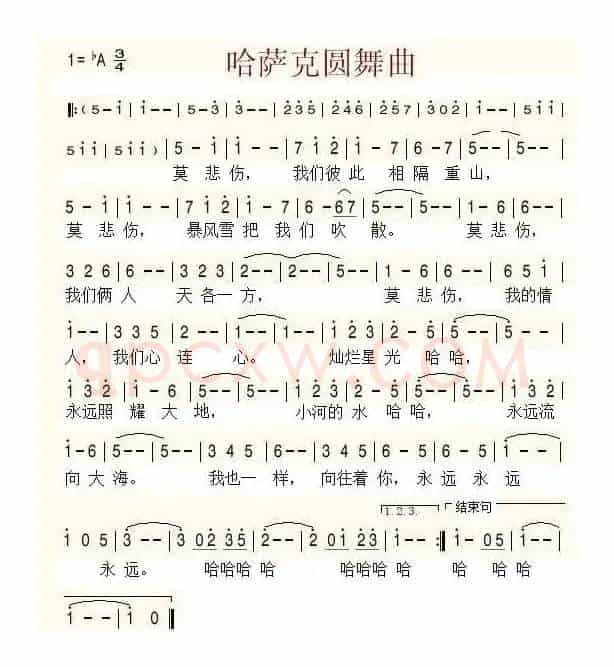 1= ♭A 3/4 哈萨克圆舞曲
‖:（5-i|i--|5-3̇|3̇--|2̇3̇5|2̇4̇6|2̇57|3̇02̇|i--|5ii|
5ii|5ii）|5-i|i--|7i2̇|i-7|6-7|5--|5--|
莫悲伤, 我们彼此 相隔重山,
5-i|i--|7i2̇|i-7|6-67|5--|5--|6-i|6--|
莫悲伤, 暴风雪把我们吹散。 莫悲伤,
326|6--|323|2--|2--|5--|i-6|6--|65i|
我们俩人 天各一方, 莫悲伤, 我的情
i--|335|5-2|i--|i--|i2̇3̇|2̇-5|5--|5--|
人, 我们心连 心。 灿烂星光 哈哈,
i3̇2̇|i-6|5--|5--|i2̇3̇|2̇-5|5--|5--|i3̇2̇|
永远照耀大地, 小河的水哈哈, 永远流
i-6|5--|5--|345|6--|345|6-5|6-5|i--|
向大海。 我也一样, 向往着你,永远永远
1.2.3. 结束句
i05|3̇--|3̇--|3̇02̇3̇|3̇2̇--|2̇--|2̇02̇3̇|i--:‖i-05|i--|
永远。 哈哈哈哈 哈哈哈哈 哈 哈哈
i--|i0‖